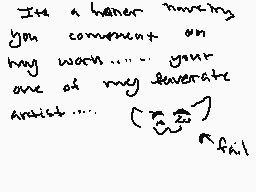 Its a honer having
you comment on
my work...... your
one of my faverate
artist.....
fail